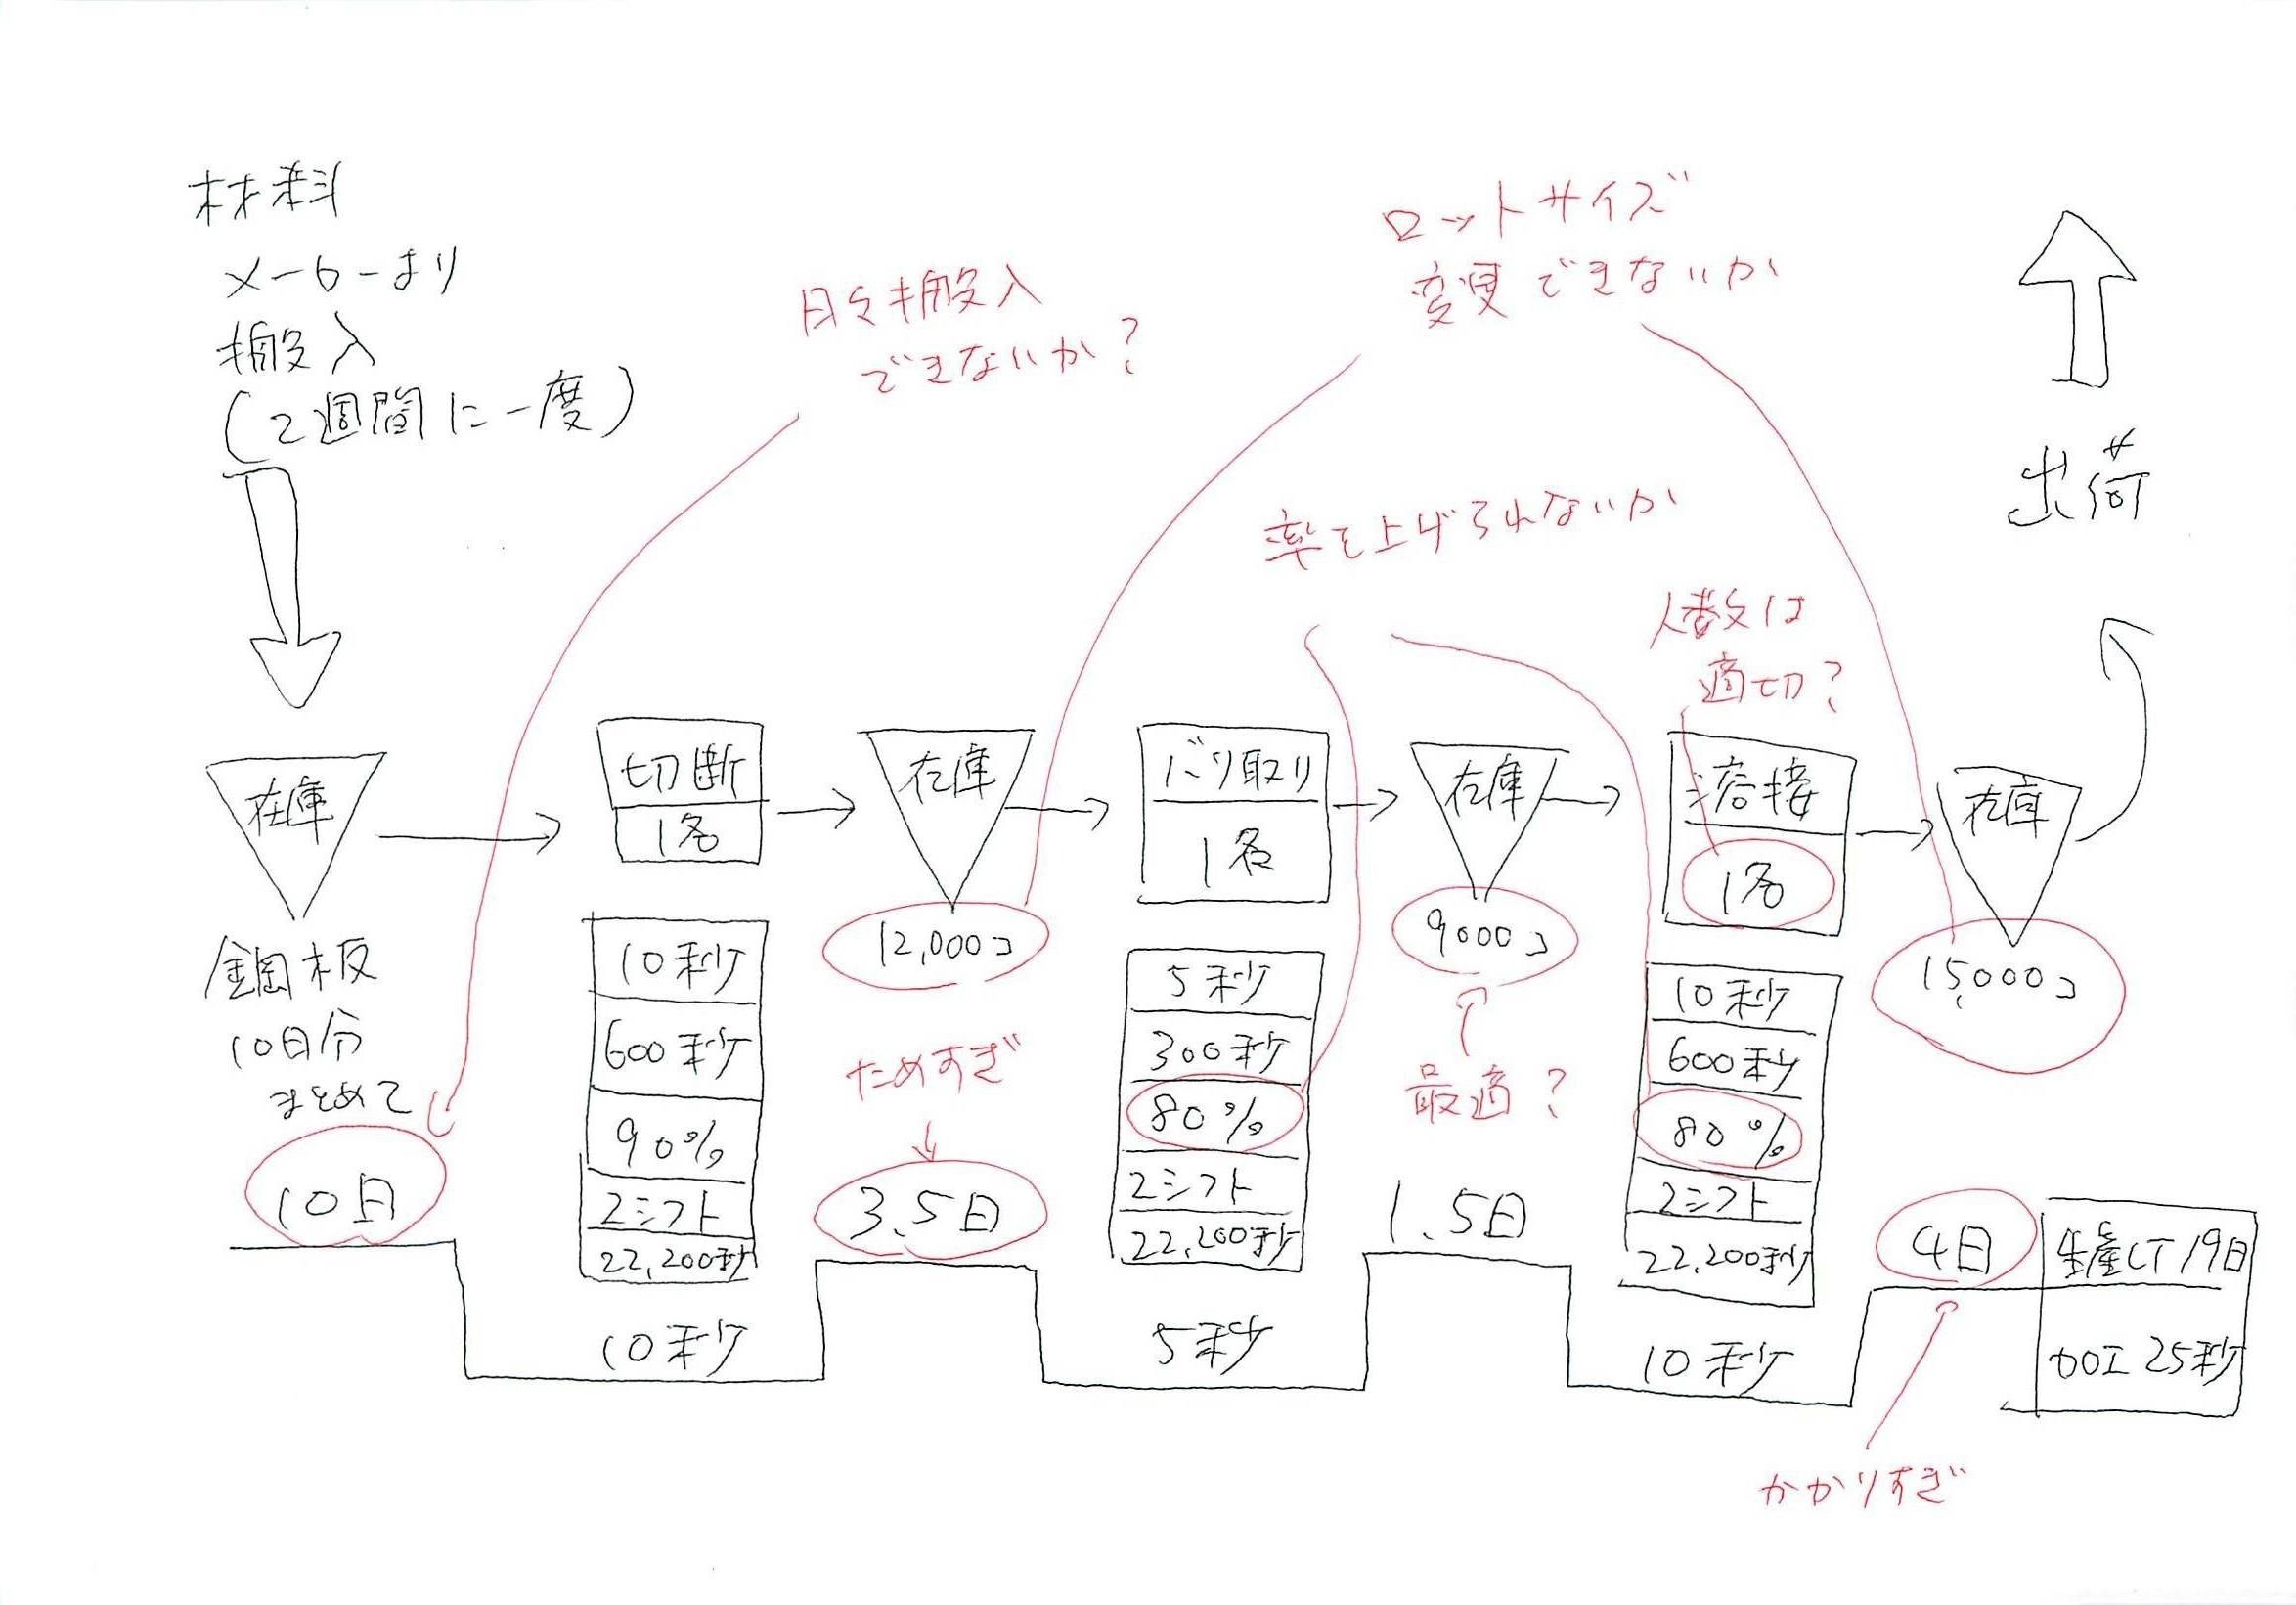 材料
メーカーより
搬入
(2週間に一度)
日々搬入
できないか?
ロットサイズ
変更できないか
率を上げられないか
人数は
適切?
出荷
在庫
鋼板
10日分
まとめて
10日
切断
1名
10秒
600秒
90%
2シフト
22,200秒
10秒
在庫
12,000コ
ためすぎ
3.5日
バリ取り
1名
5秒
300秒
80%
2シフト
22,200秒
5秒
在庫
9000コ
最適?
1.5日
溶接
1名
10秒
600秒
80%
2シフト
22,200秒
10秒
在庫
15,000コ
4日
かかりすぎ
生産LT 19日
加工 25秒